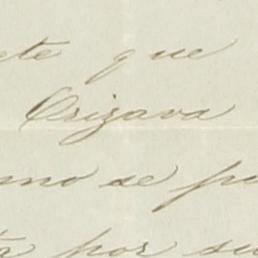 ete que
Orizava
mo se pu
por su